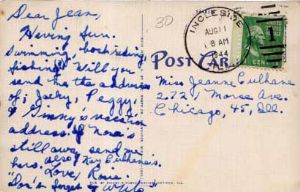 Dear Jean,
Having fun.
Swimming, horseriding,
fishing. Will you
send me the address
of Jacky, Peggy,
& Ginny's vacation
address. If Nora's
still away send me
hers. also Kay Culhane's.
Love, Rosie.
"Don't forget to write"
30
INGLESIDE
AUG 11
8 AM
1944
ILL.
1 CENT
POST CARD
Miss Jeanne Culhane
2727 Morse Ave.
Chicago, 45, Ill.